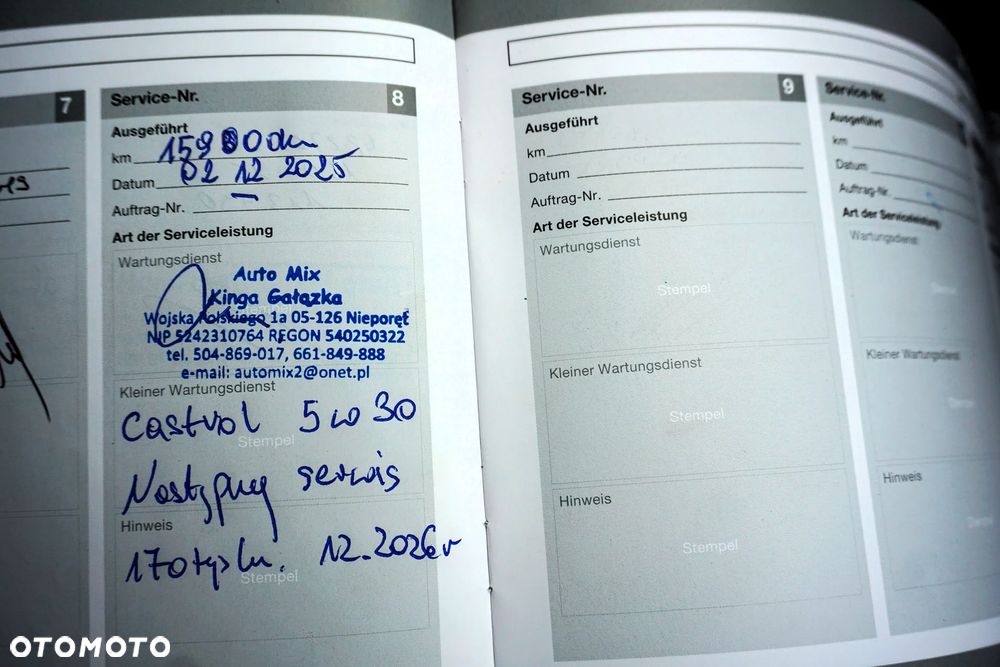 7
Service-Nr. 8
Ausgeführt
km 159 000km
Datum 02 12 2025
Auftrag-Nr.
Art der Serviceleistung
Wartungsdienst
Auto Mix
Kinga Gałązka
Wojska Polskiego 1a 05-126 Nieporęt
NIP 5242310764 REGON 540250322
tel. 504-869-017, 661-849-888
e-mail: automix2@onet.pl
Kleiner Wartungsdienst
Castrol 5w30
Stempel
Następny serwis
Hinweis
170tyskm. 12.2026r
Stempel
Service-Nr. 9
Ausgeführt
km
Datum
Auftrag-Nr.
Art der Serviceleistung
Wartungsdienst
Stempel
Kleiner Wartungsdienst
Stempel
Hinweis
Stempel
Service-Nr.
Ausgeführt
km
Datum
Auftrag-Nr.
Art der Serviceleistung
Wartungsdienst
Stempel
Kleiner Wartungsdienst
Stempel
Hinweis
Stempel
OTOMOTO